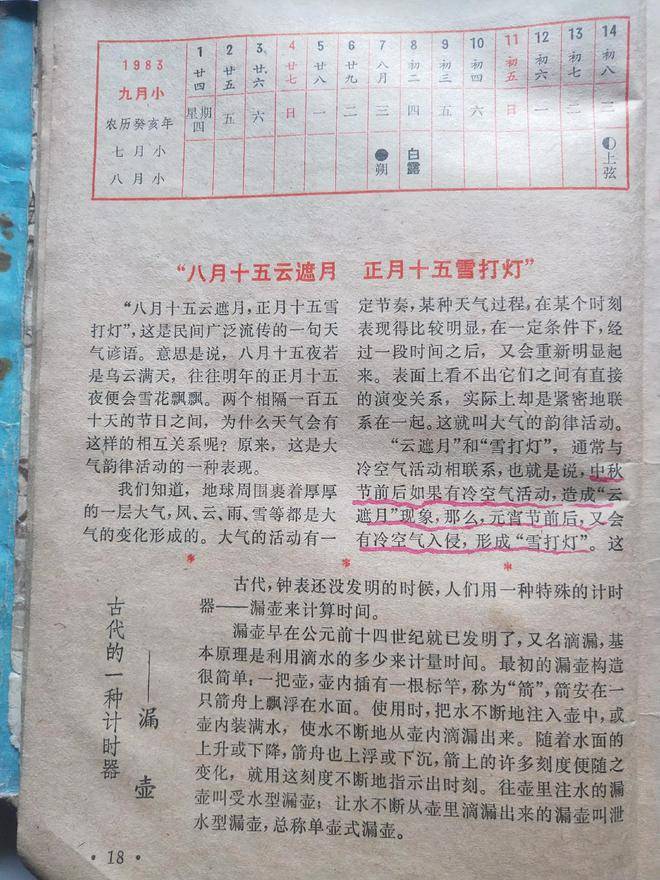 1983
九月小
农历癸亥年
七月小
八月小
1 2 3 4 5 6 7 8 9 10 11 12 13 14
廿四 廿五 廿六 廿七 廿八 廿九 八月 初二 初三 初四 初五 初六 初七 初八
星期四 五 六 日 一 二 三 四 五 六 日 一 二 三
朔 白露 上弦
“八月十五云遮月 正月十五雪打灯”
“八月十五云遮月,正月十五雪
打灯”,这是民间广泛流传的一句天
气谚语。意思是说,八月十五夜若
是乌云满天,往往明年的正月十五
夜便会雪花飘飘。两个相隔一百五
十天的节日之间,为什么天气会有
这样的相互关系呢?原来,这是大
气韵律活动的一种表现。
我们知道,地球周围裹着厚厚
的一层大气,风、云、雨、雪等都是大
气的变化形成的。大气的活动有一
定节奏,某种天气过程,在某个时刻
表现得比较明显,在一定条件下,经
过一段时间之后,又会重新明显起
来。表面上看不出它们之间有直接
的演变关系,实际上却是紧密地联
系在一起。这就叫大气的韵律活动。
“云遮月”和“雪打灯”,通常与
冷空气活动相联系,也就是说,中秋
节前后如果有冷空气活动,造成“云
遮月”现象,那么,元宵节前后,又会
有冷空气入侵,形成“雪打灯”。这
古代的一种计时器
——漏壶
古代,钟表还没发明的时候,人们用一种特殊的计时
器——漏壶来计算时间。
漏壶早在公元前十四世纪就已发明了,又名滴漏,基
本原理是利用滴水的多少来计量时间。最初的漏壶构造
很简单:一把壶,壶内插有一根标竿,称为“箭”,箭安在一
只箭舟上飘浮在水面。使用时,把水不断地注入壶中,或
壶内装满水,使水不断地从壶内滴漏出来。随着水面的
上升或下降,箭舟也上浮或下沉,箭上的许多刻度便随之
变化,就用这刻度不断地指示出时刻。往壶里注水的漏
壶叫受水型漏壶;让水不断从壶里滴漏出来的漏壶叫泄
水型漏壶,总称单壶式漏壶。
·18·